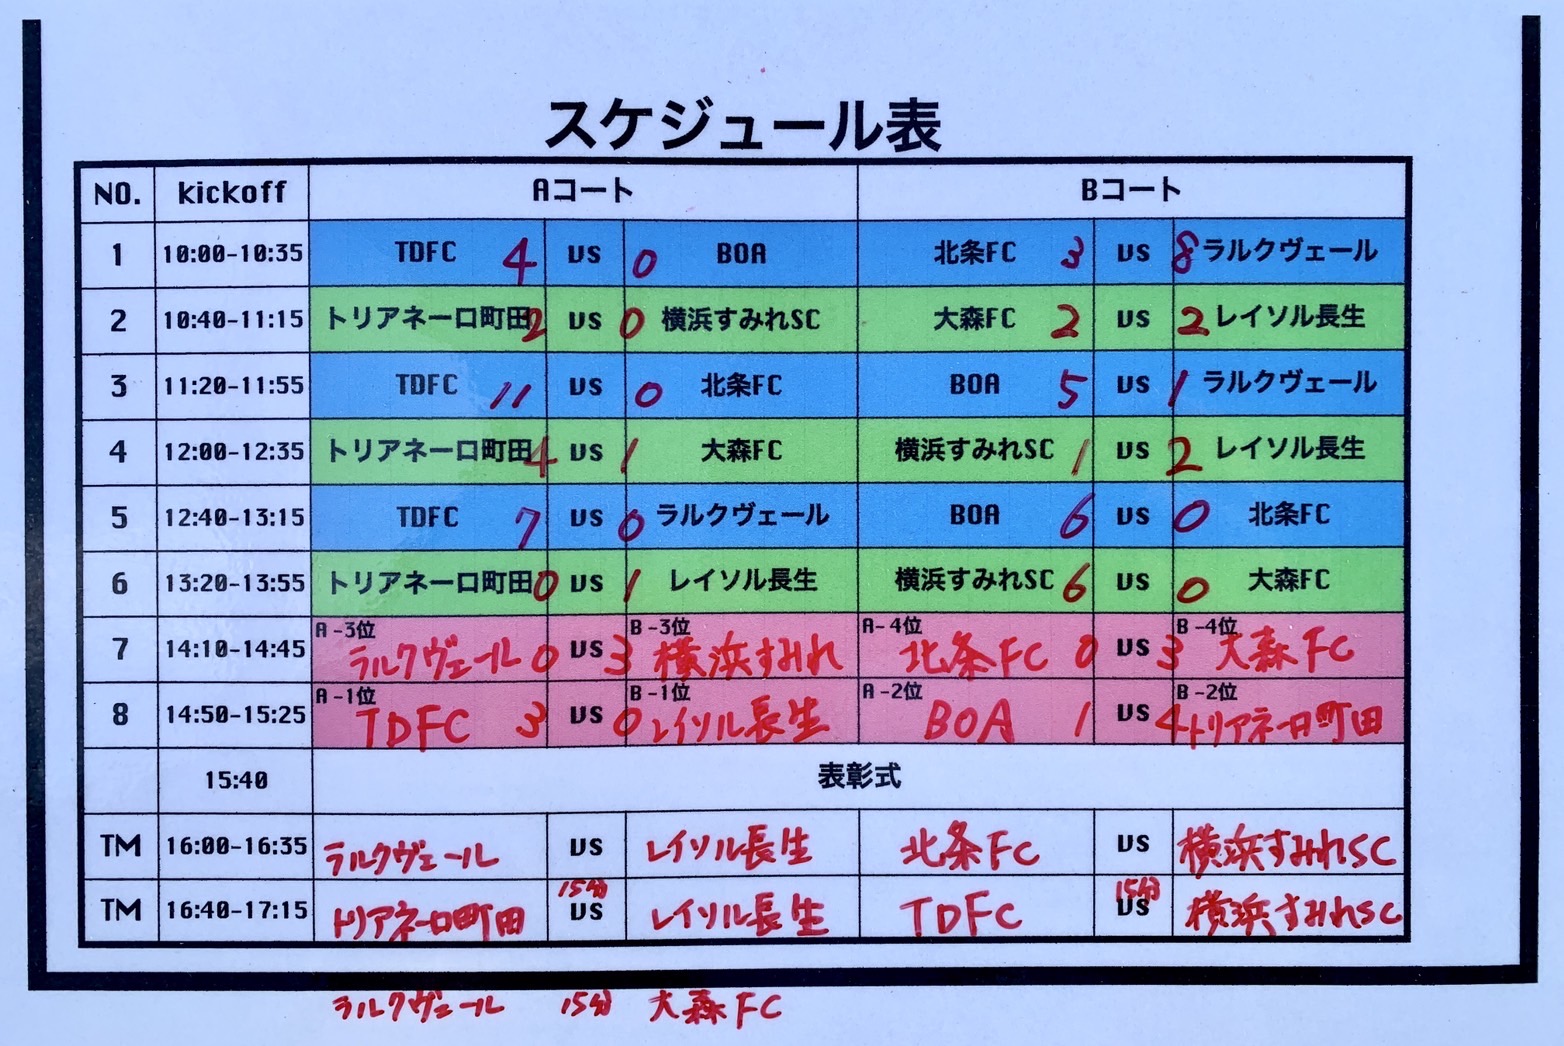 スケジュール表
NO. kickoff Aコート Bコート
1 10:00-10:35 TDFC 4 VS 0 BOA 北条FC 3 VS 8 ラルクヴェール
2 10:40-11:15 トリアネーロ町田 2 VS 0 横浜すみれSC 大森FC 2 VS 2 レイソル長生
3 11:20-11:55 TDFC 11 VS 0 北条FC BOA 5 VS 1 ラルクヴェール
4 12:00-12:35 トリアネーロ町田 4 VS 1 大森FC 横浜すみれSC 1 VS 2 レイソル長生
5 12:40-13:15 TDFC 7 VS 0 ラルクヴェール BOA 6 VS 0 北条FC
6 13:20-13:55 トリアネーロ町田 0 VS 1 レイソル長生 横浜すみれSC 6 VS 0 大森FC
A-3位 B-3位 A-4位 B-4位
7 14:10-14:45 ラルクヴェール 0 VS 3 横浜すみれ 北条FC 0 VS 3 大森FC
A-1位 B-1位 A-2位 B-2位
8 14:50-15:25 TDFC 3 VS 0 レイソル長生 BOA 1 VS 4 トリアネーロ町田
15:40 表彰式
TM 16:00-16:35 ラルクヴェール VS レイソル長生 北条FC VS 横浜すみれSC
15分 15分
TM 16:40-17:15 トリアネーロ町田 VS レイソル長生 TDFC VS 横浜すみれSC
ラルクヴェール 15分 大森FC